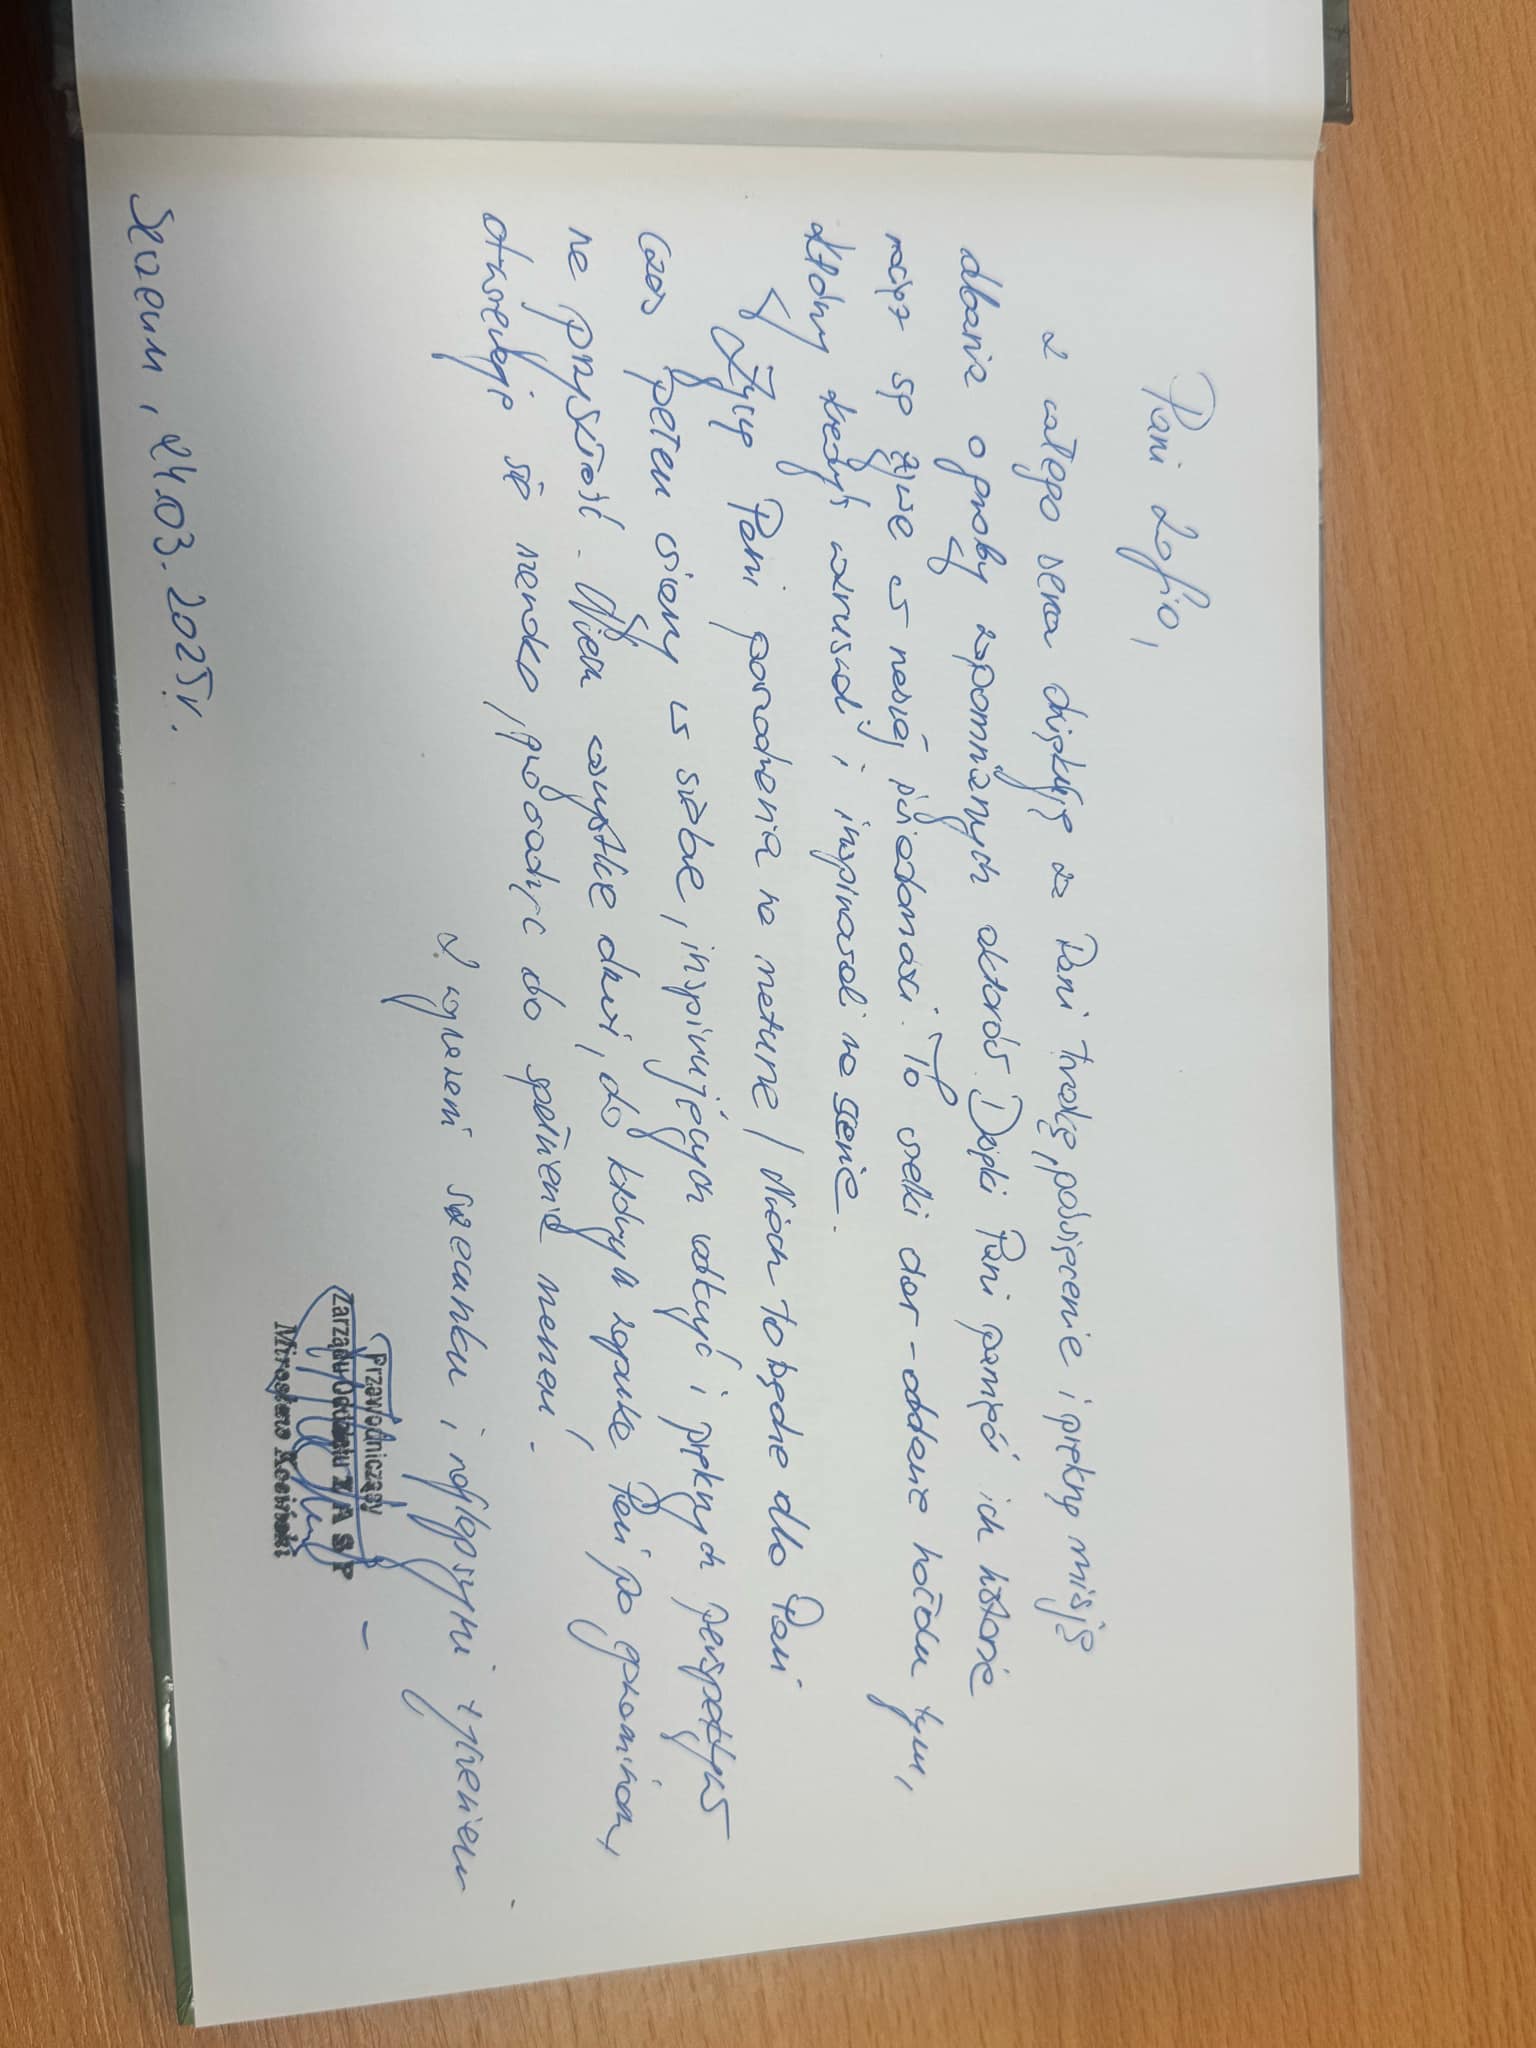 Pani Zofio,
z całego serca dziękuję za Pani troskę, poświęcenie i piękną misję
dbania o groby zapomnianych aktorów. Dzięki Pani pamięć i ich historie
są żywe w naszej świadomości. To wielki dar - oddanie hołdu tym,
którzy kiedyś wzruszali i inspirowali na scenie.
Życzę Pani powodzenia na maturze! Niech to będzie dla Pani
czas pełen wiary w siebie, inspirujących odkryć i pięknych perspektyw
na przyszłość. Niech wszystkie drzwi, do których zapuka Pani po egzaminach,
otwierają się szeroko, prowadząc do spełnienia marzeń!
Z wyrazami szacunku i najlepszymi życzeniami
Przewodniczący
Zarządu Oddziału Z A S P
Mirosław Kosiński
24.03.2025r.